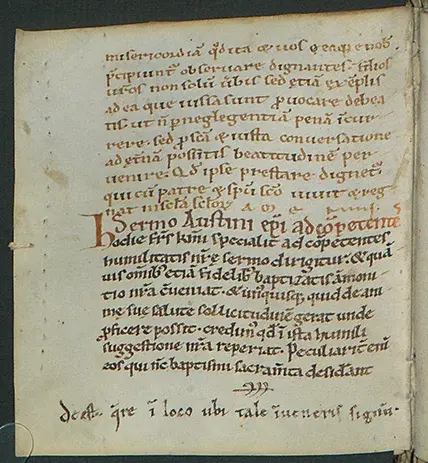 misericordiā q̄dita ē uos ꝗ eaque nob̄
p̄cipiunt̄ obseruare dignantes filios
ur̄os non solū ūbis sed ꝗtiā exēplis
ad ea que iusta sunt ꝓuocare debea
tis ut n̄ ꝓ neglegentiā penā īcur
rere sed ꝓ scā & iusta conuersatione
ad ęt̄nā possitis beatitudinē per
uenire. Qd̄ ipse prestare dignet̄
qui cū patre & sp̄u scō uiuit & reg
nat in sc̄la sc̄lor̄ A M E
Sermo Austini ep̄i ad cōpetentes
Hodie fr̄s km̄i specialit̄ ad cōpetentes
humilitatis nr̄e sermo dirigitur & quā
uis om̄ib; etiā fidelib; baptizatis āmoni
tio nr̄a cueniat & un̄quisq; quid de ani
me sue salute sollicitudinē gerat unde
ꝓficere possit. credim̄ qd̄ ī ista humili
suggestione nr̄a reperiat. Peculiarit̄ enī
eos qui nc̄ baptismi sacram̄ta desidant
deest q̄re ī loco ubi tale īueneris signū.